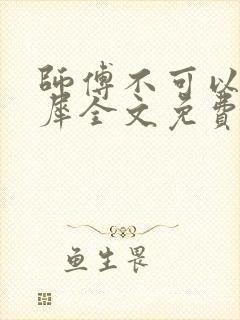 師傅不可以
犀全文免費
鱼生畏